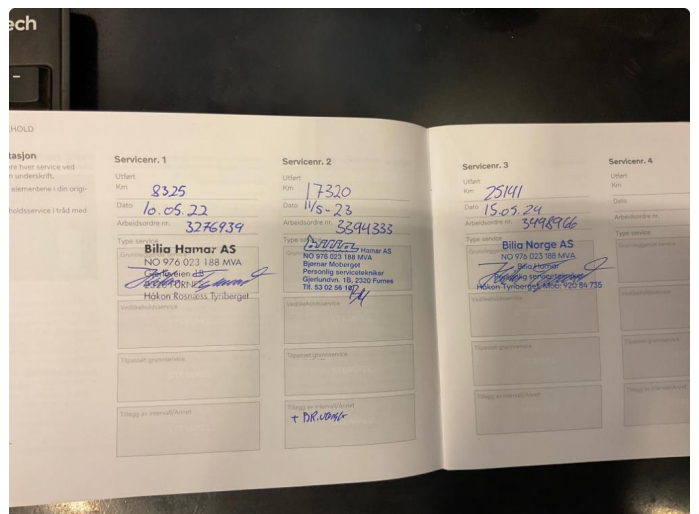 ech
HOLD
tasjon
re hver service ved
n underskrift.
elementene i din origi-
holdsservice i tråd med
Servicenr. 1
Utført
Km 8325
Dato 10.05.22
Arbeidsordre nr. 3276939
Type service
Bilia Hamar AS
NO 976 023 188 MVA
Håkon Rosnæss Tyriberget
Vedlikeholdsservice
Tilpasset grunnservice
Tillegg av intervall/Annet
Servicenr. 2
Utført
Km 17320
Dato 11/5-23
Arbeidsordre nr. 3394333
Type se
Hamar AS
NO 976 023 188 MVA
Bjørnar Moberget
Personlig servicetekniker
Gjerlundvn. 1B, 2320 Furnes
Tlf. 53 02 56
Vedlikeholdsservice
Tilpasset grunnservice
Tillegg av intervall/Annet
+ BR.
Servicenr. 3
Utført
Km 25141
Dato 15.05.24
Arbeidsordre nr. 3498966
Type service
Bilia Norge AS
NO 976 023 188 MVA
Bilia Hamar
Håkon Tyriberget, Mob: 920 84 735
Vedlikeholdsservice
Tilpasset grunnservice
Tillegg av intervall/Annet
Servicenr. 4
Utført
Km
Dato
Arbeidsordre nr.
Type service
Grunnleggende service
Vedlikeholdsservice
Tilpasset grunnservice
Tillegg av intervall/Annet